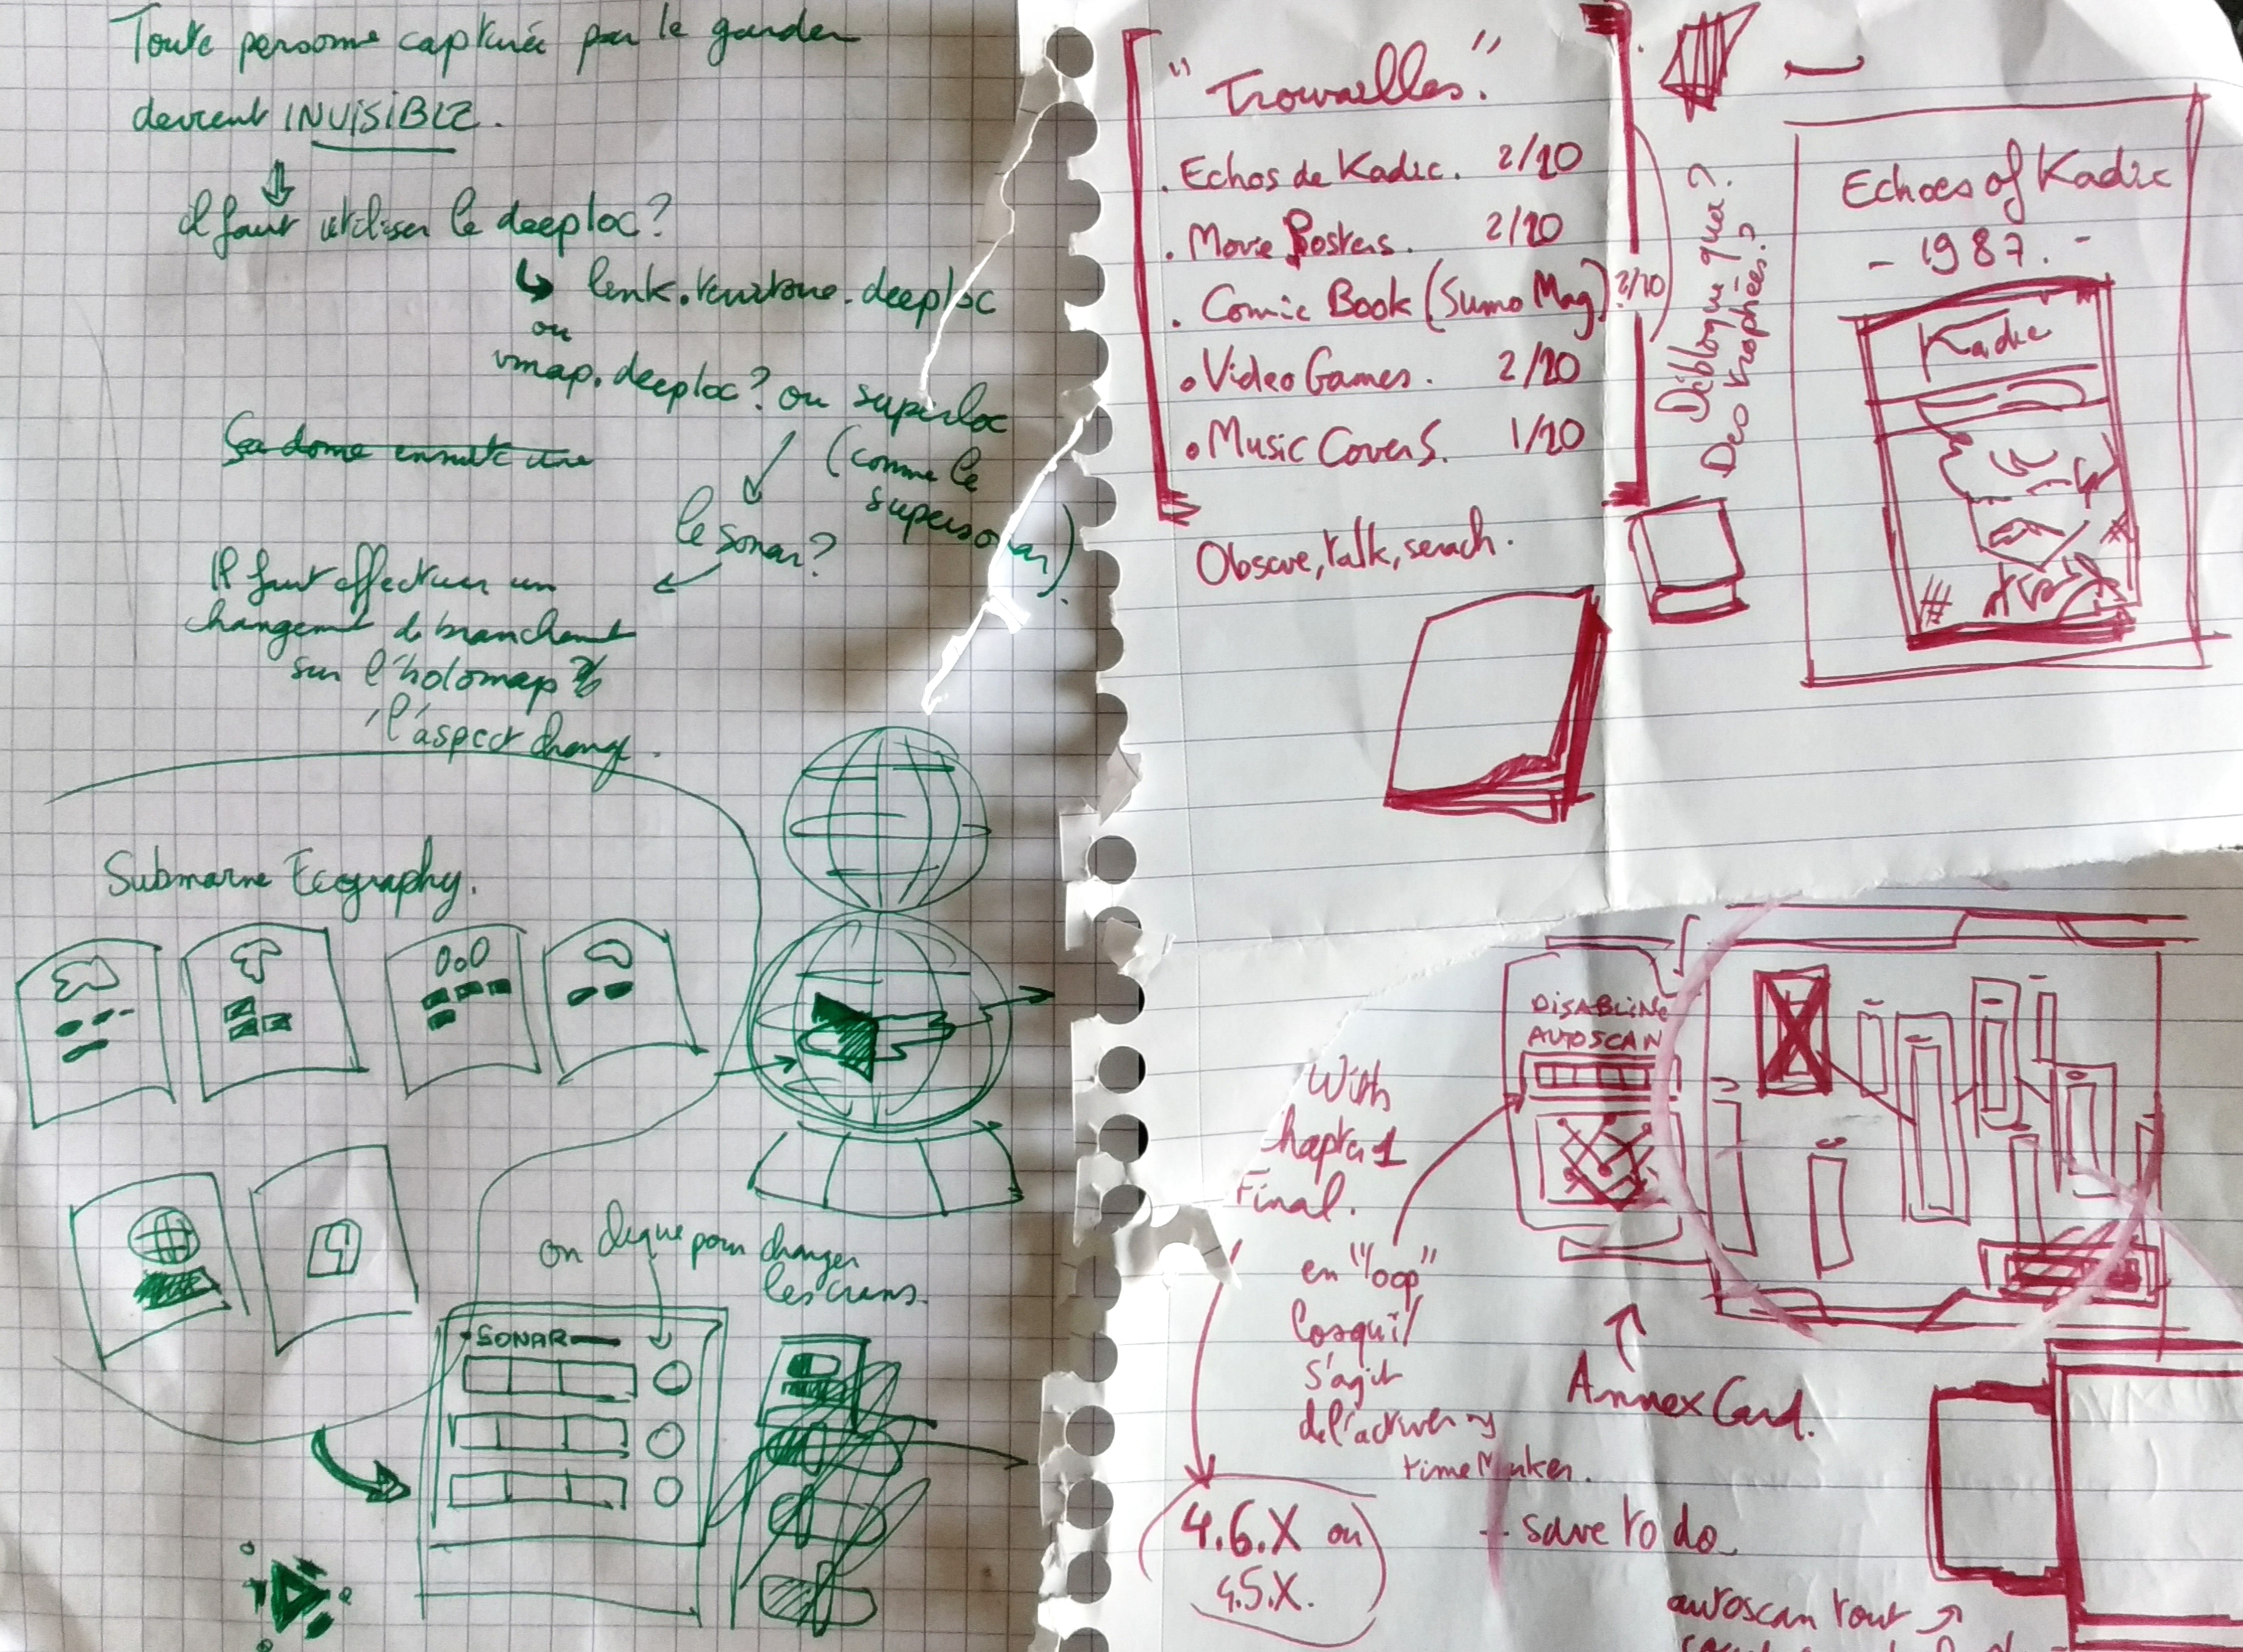 Toute personne capturée par le garden
devient INVISIBLE.
il faut utiliser le deeploc?
ou
vmap.deeploc? ou superloc
(comme le
supersonar).
le sonar?
Ça donne ensuite une
Il faut effectuer un
changement de branchement
sur l'holomap
l'aspect change.
Submarne Ecography.
on clique pour changer
les crans.
SONAR
"Trouvailles."
. Echos de Kadic. 2/10
. Movie Posters. 2/10
. Comic Book (Sumo Mag) 2/10
. Video Games. 2/10
. Music Covers. 1/10
Débloque quoi?
Des trophées?
Observe, talk, serach.
Echoes of Kadic
- 1987. -
Kadic
DISABLING
AUTOSCAN
With
Chapter 1
Final.
en "loop"
losqu'il
s'agit
de l'activer
Annex Card.
4.6.X ou
4.5.X.
- save to do
autoscan tout